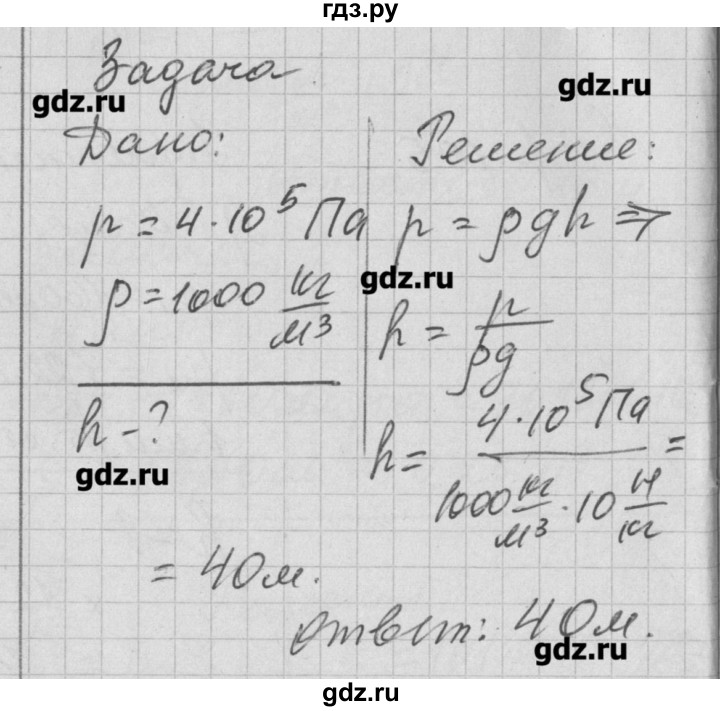 гдз.ру
Задача
gdz.ru
gdz.ru
Дано:
p = 4·10⁵ Па
ρ = 1000 кг/м³
h - ?
gdz.ru
Решение:
p = ρgh ⇒
gdz.ru
h = p/ρg
h = 4·10⁵ Па / 1000 кг/м³ · 10 Н/кг =
= 40 м.
Ответ: 40 м.
gdz.ru
gdz.ru